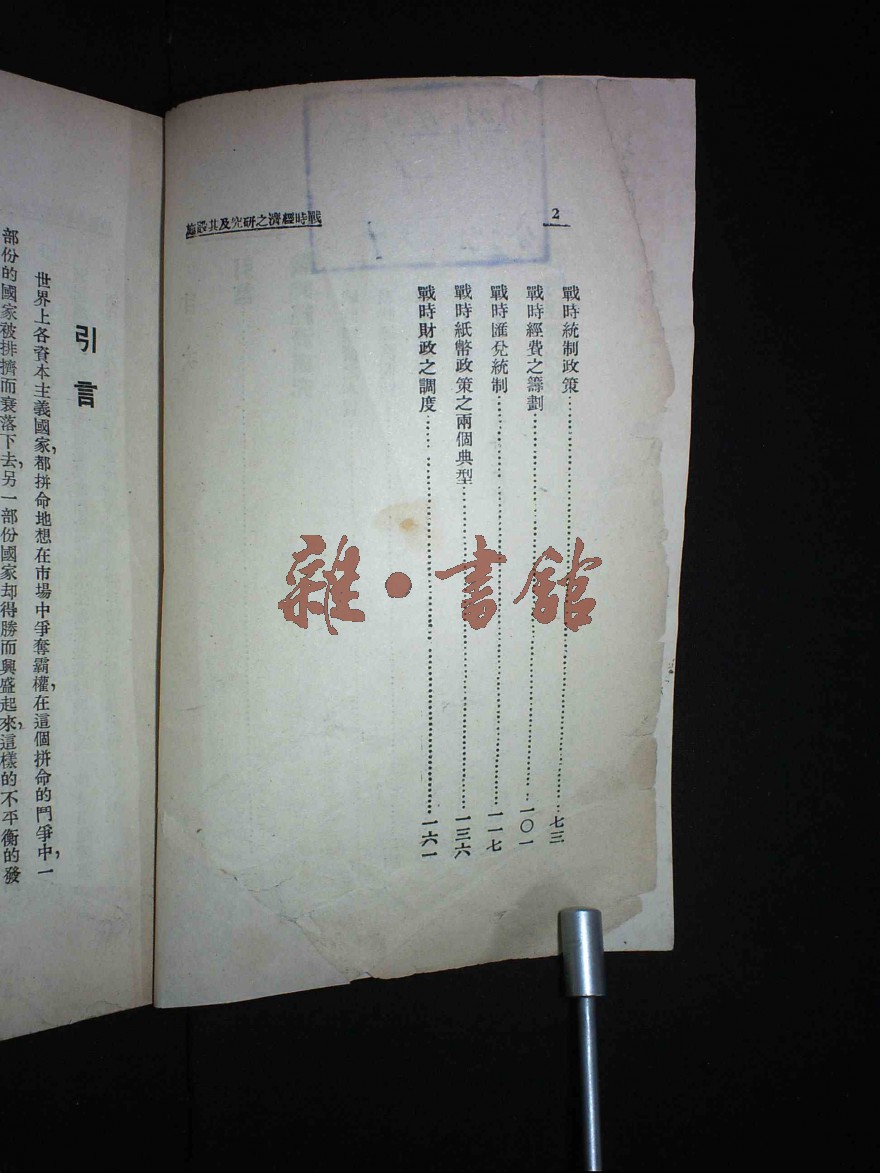 2
戰時經濟之研究及其設施
戰時統制政策……七三
戰時經費之籌劃……一〇一
戰時匯兌統制……一一七
戰時紙幣政策之兩個典型……一三六
戰時財政之調度……一六一
雜·書館
引言
世界上各資本主義國家，都拼命地想在市場中爭奪霸權，在這個拼命的鬥爭中，一
部份的國家被排擠而衰落下去，另一部份國家却得勝而興盛起來，這樣的不平衡的發